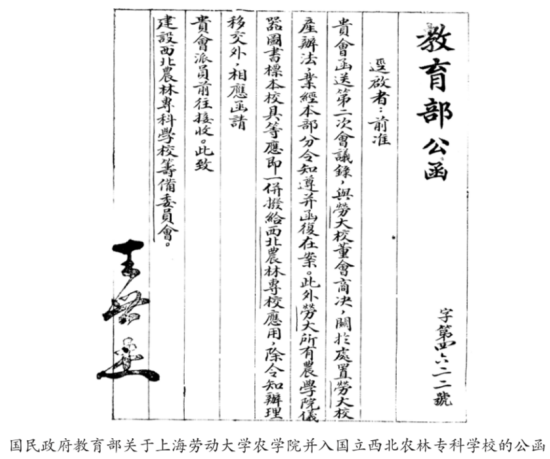 教育部公函
字第四六二二號
逕啟者：前准
貴會函送第二次會議錄，與勞大校董會商决，關於處置勞大校
產辦法，業經本部分令知遵并函復在案。此外勞大所有農學院儀
器圖書標本校具等應即一併撥給西北農林專校應用，除令知辦理
移交外，相應函請
貴會派員前往接收。此致
建設西北農林專科學校籌備委員會。
国民政府教育部关于上海劳动大学农学院并入国立西北农林专科学校的公函